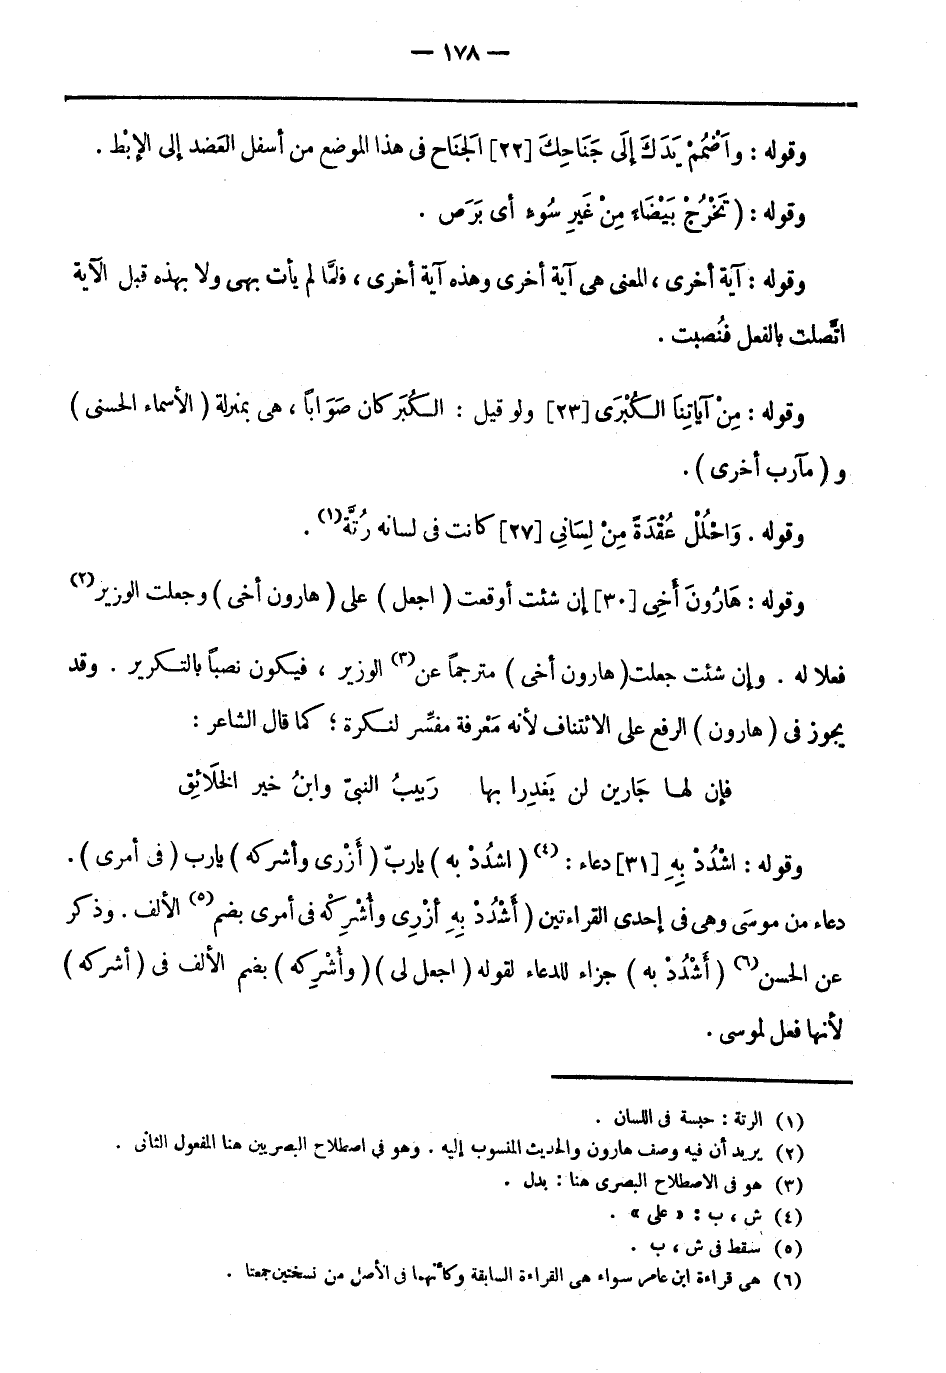 — ١٧٨ —
وقوله : واَضْمُمْ يَدَكَ إِلَى جَنَاحِكَ [٢٢] الَجَنَاح فى هذا الموضع من أسفل العَضد إلى الإبْط .
وقوله : ( تَخْرُجْ بَيْضَاءَ مِنْ غَيرِ سُوءِ أى بَرَص .
وقوله : آية أخرى ، المعنى هى آية أخرى وهذه آية أخرى ، فلمَّا لم يأت بهى ولا بهذه قبل الآية
اتَّصلت بالفعل فنُصبت .
وقوله : مِنْ آيَاتِنَا الكُبْرَى [٢٣] ولو قيل : الكُبَر كان صَوَاباً ، هى بمنزلة ( الأسماء الحسنى )
و ( مآرب أخرى ) .
وقوله . وَاحْلُلْ عُقْدَةً مِنْ لِسَانِي [٢٧] كانت فى لسانه رُتَّة(١) .
وقوله : هَارُونَ أَخِى [٣٠] إن شئت أوقعت ( اجعل ) على ( هارون أخى ) وجعلت الوزير(٢)
فعلا له . وإن شئت جعلت ( هارون أخى ) مترجماً عن(٣) الوزير ، فيكون نصباً بالتكرير . وقد
يجوز فى ( هارون ) الرفع على الائتناف لأنه مَعْرفة مفسِّر لنكرة ؛ كما قال الشاعر :
فإن لها جَارين لن يَغدِرا بها رَبيبُ النبىّ وابنُ خير الخلَائِق
وقوله : اشْدُدْ بِهِ [٣١] دعاء : (٤) ( اشدُدْ به ) يارَبّ ( أَزْرى وأشركه ) يارب ( فى أمرى ) .
دعاء من موسَى وهى فى إحدى القراءتين ( أَشْدُدْ بِهِ أزْرِى وأُشْرِكْه فى أمرى بضم(٥) الألف . وذكر
عن الحسن(٦) ( أَشْدُدْ به ) جزاء للدعاء لقوله ( اجعل لى ) ( وأُشْرِكه ) بضم الألف فى ( أشركه )
لأنها فعل لموسى .
(١) الرتة : حبسة فى اللسان .
(٢) يريد أن فيه وصف هارون والحديث المنسوب إليه . وهو فى اصطلاح البصريين هنا المفعول الثانى .
(٣) هو فى الاصطلاح البصرى هنا : بدل .
(٤) ش ، ب : « على » .
(٥) سقط فى ش ، ب .
(٦) هى قراءة ابن عامر سواء هى القراءة السابقة وكأنهما فى الأصل من نسختين جمعتا .